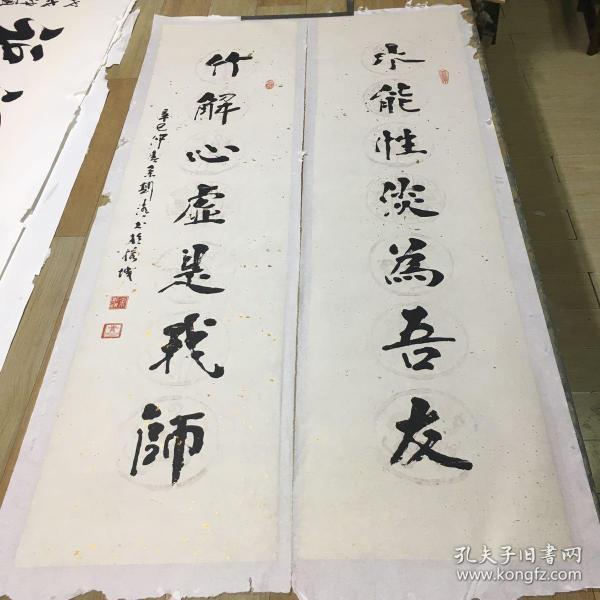 水能性淡為吾友
竹解心虛是我師
辛巳仲春
孔夫子旧书网
www.kongfz.com